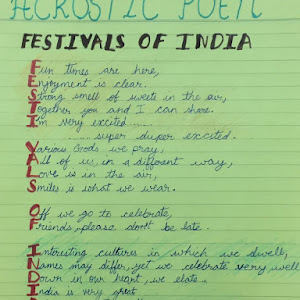 ACROSTIC POEM
FESTIVALS OF INDIA
Fun times are here,
Enjoyment is clear.
Strong smell of sweets in the air,
Together you and I can share.
I'm very excited.....
........ super duper excited.
Various Gods we pray,
All of us, in a different way,
Love is in the air,
Smiles is what we wear.
Off we go to celebrate,
Friends, please don't be late.
Interesting cultures in which we dwell,
Names may differ, yet we celebrate very well
Down in our heart, we elate.
India is very great